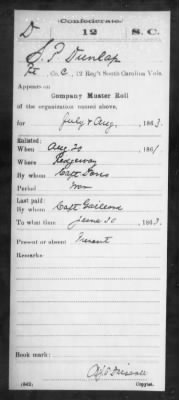 Confederate
D 12 S. C.
S. F. Dunlap
Co. C, 12 Reg't South Carolina Vols.
Appears on
Company Muster Roll
of the organization named above,
for July & Aug, 1863.
Enlisted:
When Aug 20, 1861
Where Ridgeway
By whom Capt Davis
Period War
Last paid:
By whom Capt Gaillard
To what time June 30, 1863.
Present or absent Present
Remarks:
Book mark:
(642) Copyist.